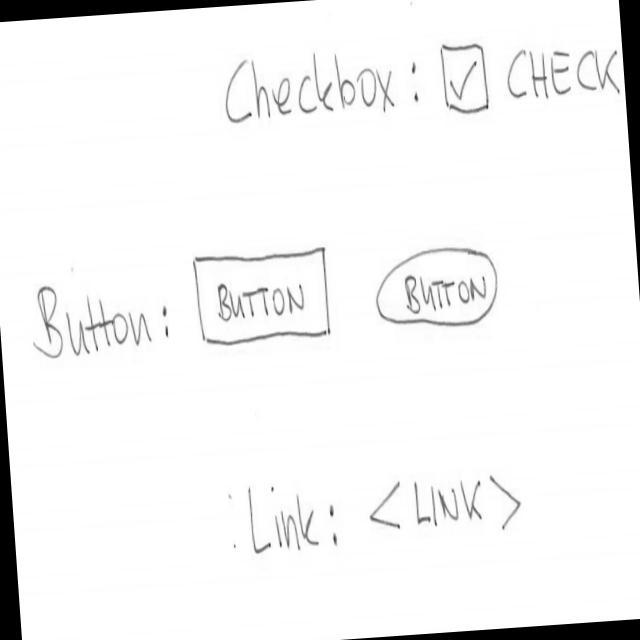 Checkbox: ☑ CHECK
Button: BUTTON BUTTON
Link: <LINK>